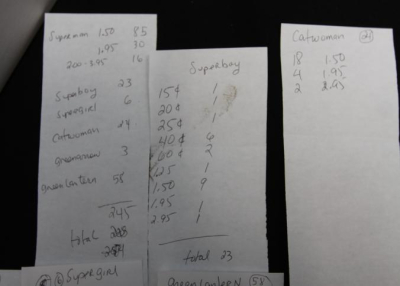 Superman 1.50 85
1.95 30
200-3.95 16
Superboy 23
Supergirl 6
Catwoman 24
Greenarrow 3
Green Lantern 58
245
total
Superboy
15¢ 1
20¢ 1
25¢ 1
40¢ 6
60¢ 2
1.25 1
1.50 9
1.95 1
2.95 1
total 23
Catwoman 24
18 1.50
4 1.95
2 2.95
Supergirl
Green Lantern 58